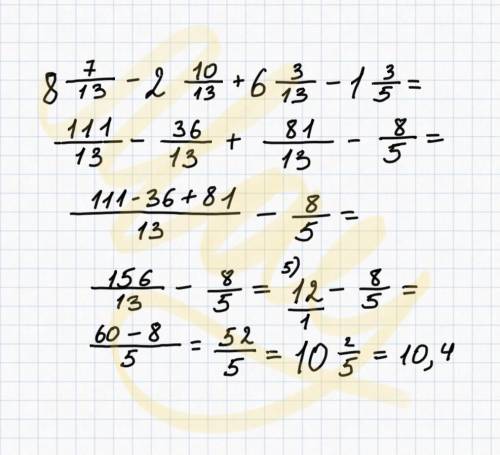 8 7/13 - 2 10/13 + 6 3/13 - 1 3/5 =
111/13 - 36/13 + 81/13 - 8/5 =
(111 - 36 + 81)/13 - 8/5 =
156/13 - 8/5 = 5) 12/1 - 8/5 =
(60 - 8)/5 = 52/5 = 10 2/5 = 10,4